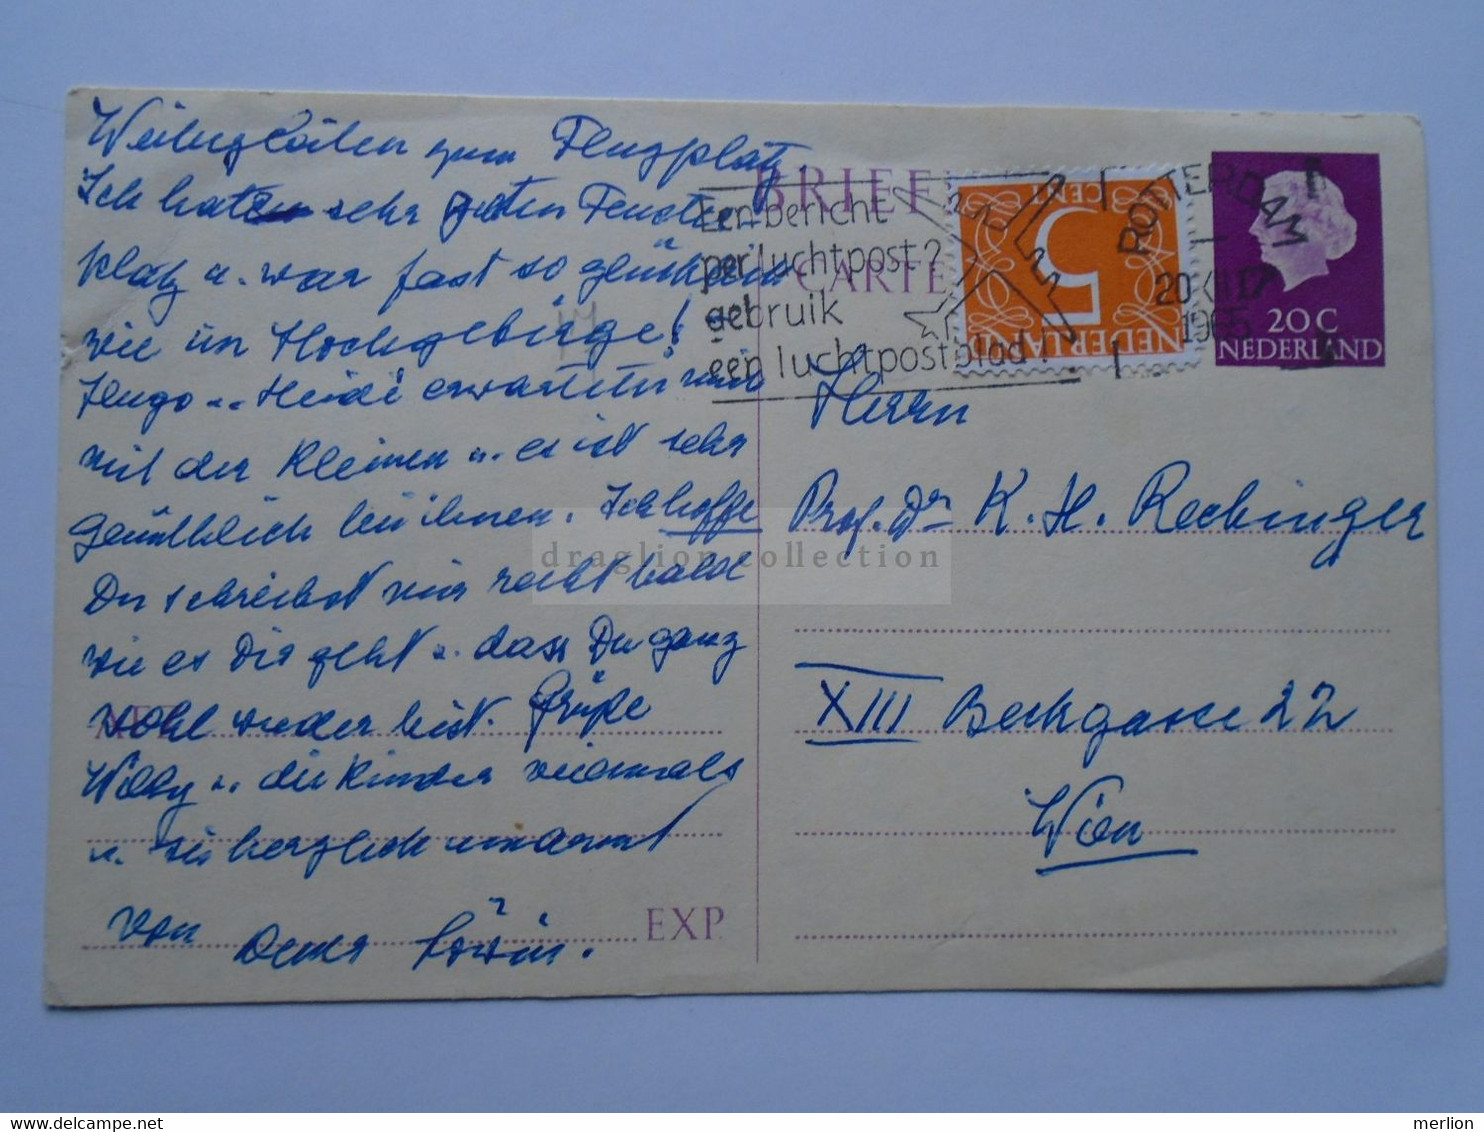 zum Flugplatz.
Ich hatte sehr guten Fenster
platz u. war fast so glücklich
wie im Hochgebirge!
Hugo u. Heidi erwarteten mich
mit der Kleinen u. es ist sehr
gemütlich bei ihnen. Ich hoffe
Du schreibst mir recht bald
wie es Dir geht u. dass Du ganz
wohl wieder bist. Grüße
Willy u. die Kinder vielmals
u. sei herzlich umarmt
von Deiner
EXP
BRIEF
CARTE
Een bericht
per luchtpost?
gebruik
een luchtpostblad!
ROTTERDAM
20 XII 17
1965
5
CENT
NEDERLAND
20 C
NEDERLAND
Herrn
Prof. Dr K. H. Rechinger
XIII Beckgasse 22
Wien
draglion collection
delcampe.net
merlion